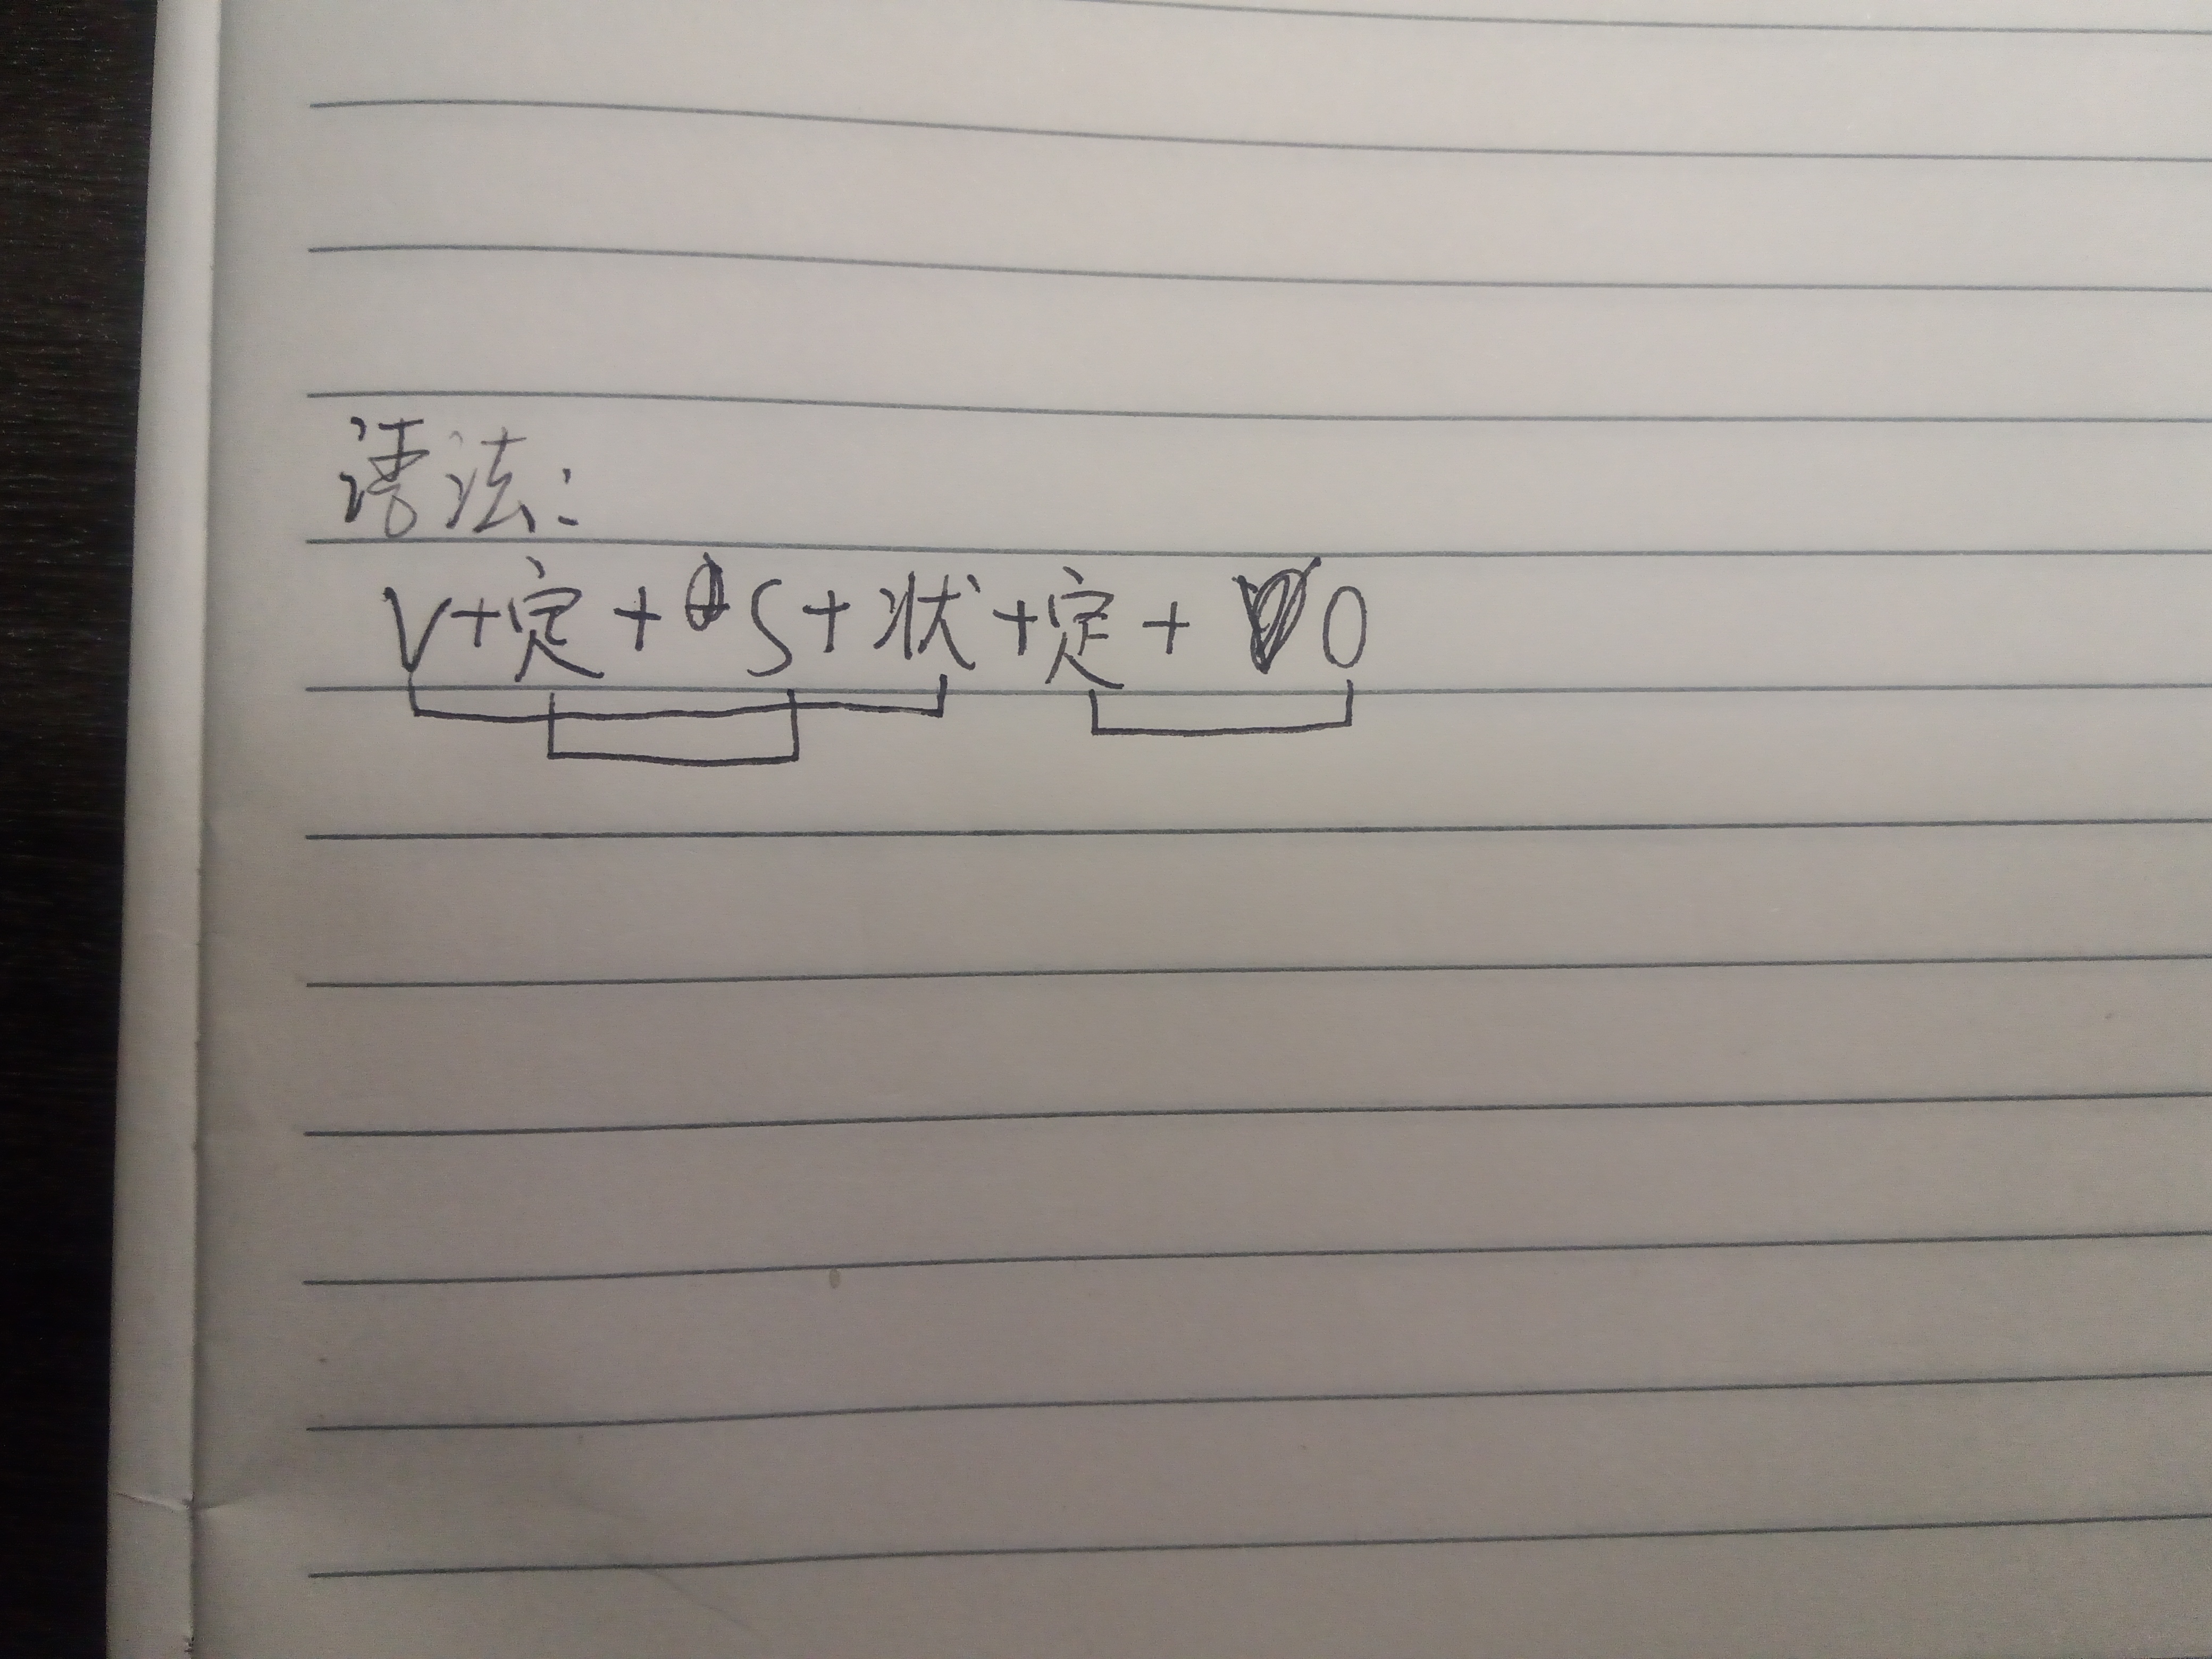 语法:
V+定+S+状+定+O